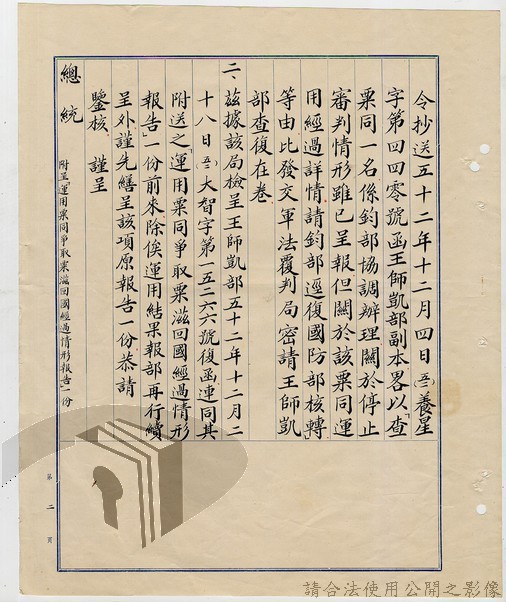 令抄送五十二年十二月四日(五二)養星
字第四四零號函王師凱部副本畧以「查
栗同一名係鈞部協調辦理關於停止
審判情形雖已呈報但關於該栗同運
用經過詳情請鈞部逕復國防部核轉」
等由比發交軍法覆判局密請王師凱
部查復在卷
二、茲據該局檢呈王師凱部五十二年十二月二
十八日(五二)大智字第一五二六六號復函連同其
附送之「運用栗同爭取栗滋回國經過情形
報告」一份前來除俟運用結果報部再行續
呈外謹先繕呈該項原報告一份恭請
鑒核 謹呈
總統
附呈「運用栗同爭取栗滋回國經過情形報告」一份
第二頁
請合法使用公開之影像